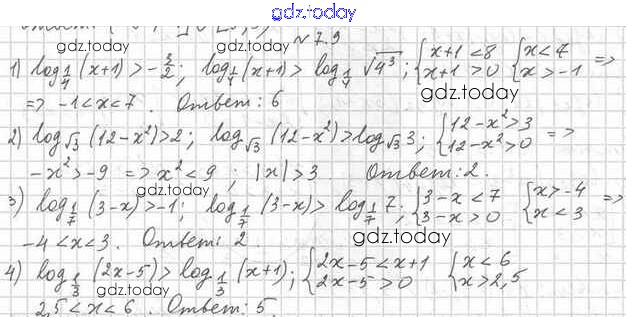 gdz.today
gdz.today gdz.today
№ 7.9
1) log_{1/4} (x+1) > -3/2; log_{1/4} (x+1) > log_{1/4} √4³; { x+1 < 8 x+1 > 0 { x < 7 x > -1 =>
gdz.today
=> -1 < x < 7. Ответ: 6
gdz.today
2) log_{√3} (12-x²) > 2; log_{√3} (12-x²) > log_{√3} 3; { 12-x² > 3 12-x² > 0 =>
-x² > -9 => x² < 9; |x| > 3. Ответ: 2.
gdz.today gdz.today
3) log_{1/7} (3-x) > -1; log_{1/7} (3-x) > log_{1/7} 7; { 3-x < 7 3-x > 0 { x > -4 x < 3 =>
gdz.today
-4 < x < 3. Ответ: 2
gdz.today
4) log_{1/3} (2x-5) > log_{1/3} (x+1); { 2x-5 < x+1 2x-5 > 0 { x < 6 x > 2,5
gdz.today gdz.today
2,5 < x < 6. Ответ: 5.